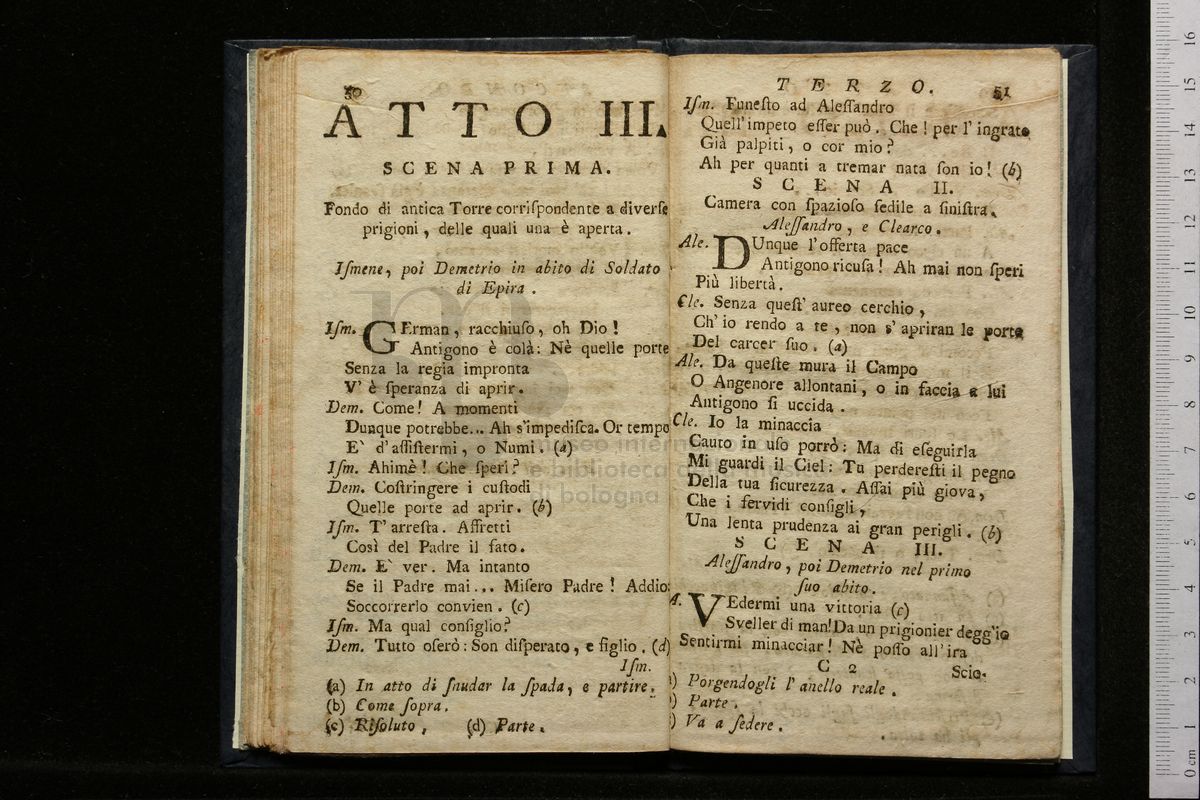 50
ATTO III.
SCENA PRIMA.
Fondo di antica Torre corriſpondente a diverſe
prigioni, delle quali una è aperta.
Iſmene, poi Demetrio in abito di Soldato
di Epira.
Iſm. GErman, racchiuſo, oh Dio!
Antigono è colà: Nè quelle porte
Senza la regia impronta
V' è ſperanza di aprir.
Dem. Come! A momenti
Dunque potrebbe... Ah s'impediſca. Or tempo
E' d'aſſiſtermi, o Numi. (a)
Iſm. Ahimè! Che ſperi?
Dem. Coſtringere i cuſtodi
Quelle porte ad aprir. (b)
Iſm. T' arreſta. Affretti
Così del Padre il fato.
Dem. E' ver. Ma intanto
Se il Padre mai... Miſero Padre! Addio:
Soccorrerlo convien. (c)
Iſm. Ma qual conſiglio?
Dem. Tutto oſerò: Son diſperato, e figlio. (d)
Iſm.
(a) In atto di ſnudar la ſpada, e partire.
(b) Come ſopra.
(c) Riſoluto, (d) Parte.
TERZO. 51
Iſm. Funeſto ad Aleſſandro
Quell' impeto eſſer può. Che! per l' ingrato
Già palpiti, o cor mio?
Ah per quanti a tremar nata ſon io! (b)
SCENA II.
Camera con ſpazioſo ſedile a ſiniſtra.
Aleſſandro, e Clearco.
Ale. DUnque l'offerta pace
Antigono ricuſa! Ah mai non ſperi
Più libertà.
Cle. Senza queſt' aureo cerchio,
Ch' io rendo a te, non s' apriran le porte
Del carcer ſuo. (a)
Ale. Da queſte mura il Campo
O Angenore allontani, o in faccia a lui
Antigono ſi uccida.
Cle. Io la minaccia
Cauto in uſo porrò: Ma di eſeguirla
Mi guardi il Ciel: Tu perdereſti il pegno
Della tua ſicurezza. Aſſai più giova,
Che i fervidi conſigli,
Una lenta prudenza ai gran perigli. (b)
SCENA III.
Aleſſandro, poi Demetrio nel primo
ſuo abito.
A. VEdermi una vittoria (c)
Sveller di man! Da un prigionier degg'io
Sentirmi minacciar! Nè poſſo all' ira
C 2 Scio-
) Porgendogli l' anello reale.
) Parte.
) Va a ſedere.
museo internazionale
e biblioteca della musica
di bologna
0 cm 1 2 3 4 5 6 7 8 9 10 11 12 13 14 15 16